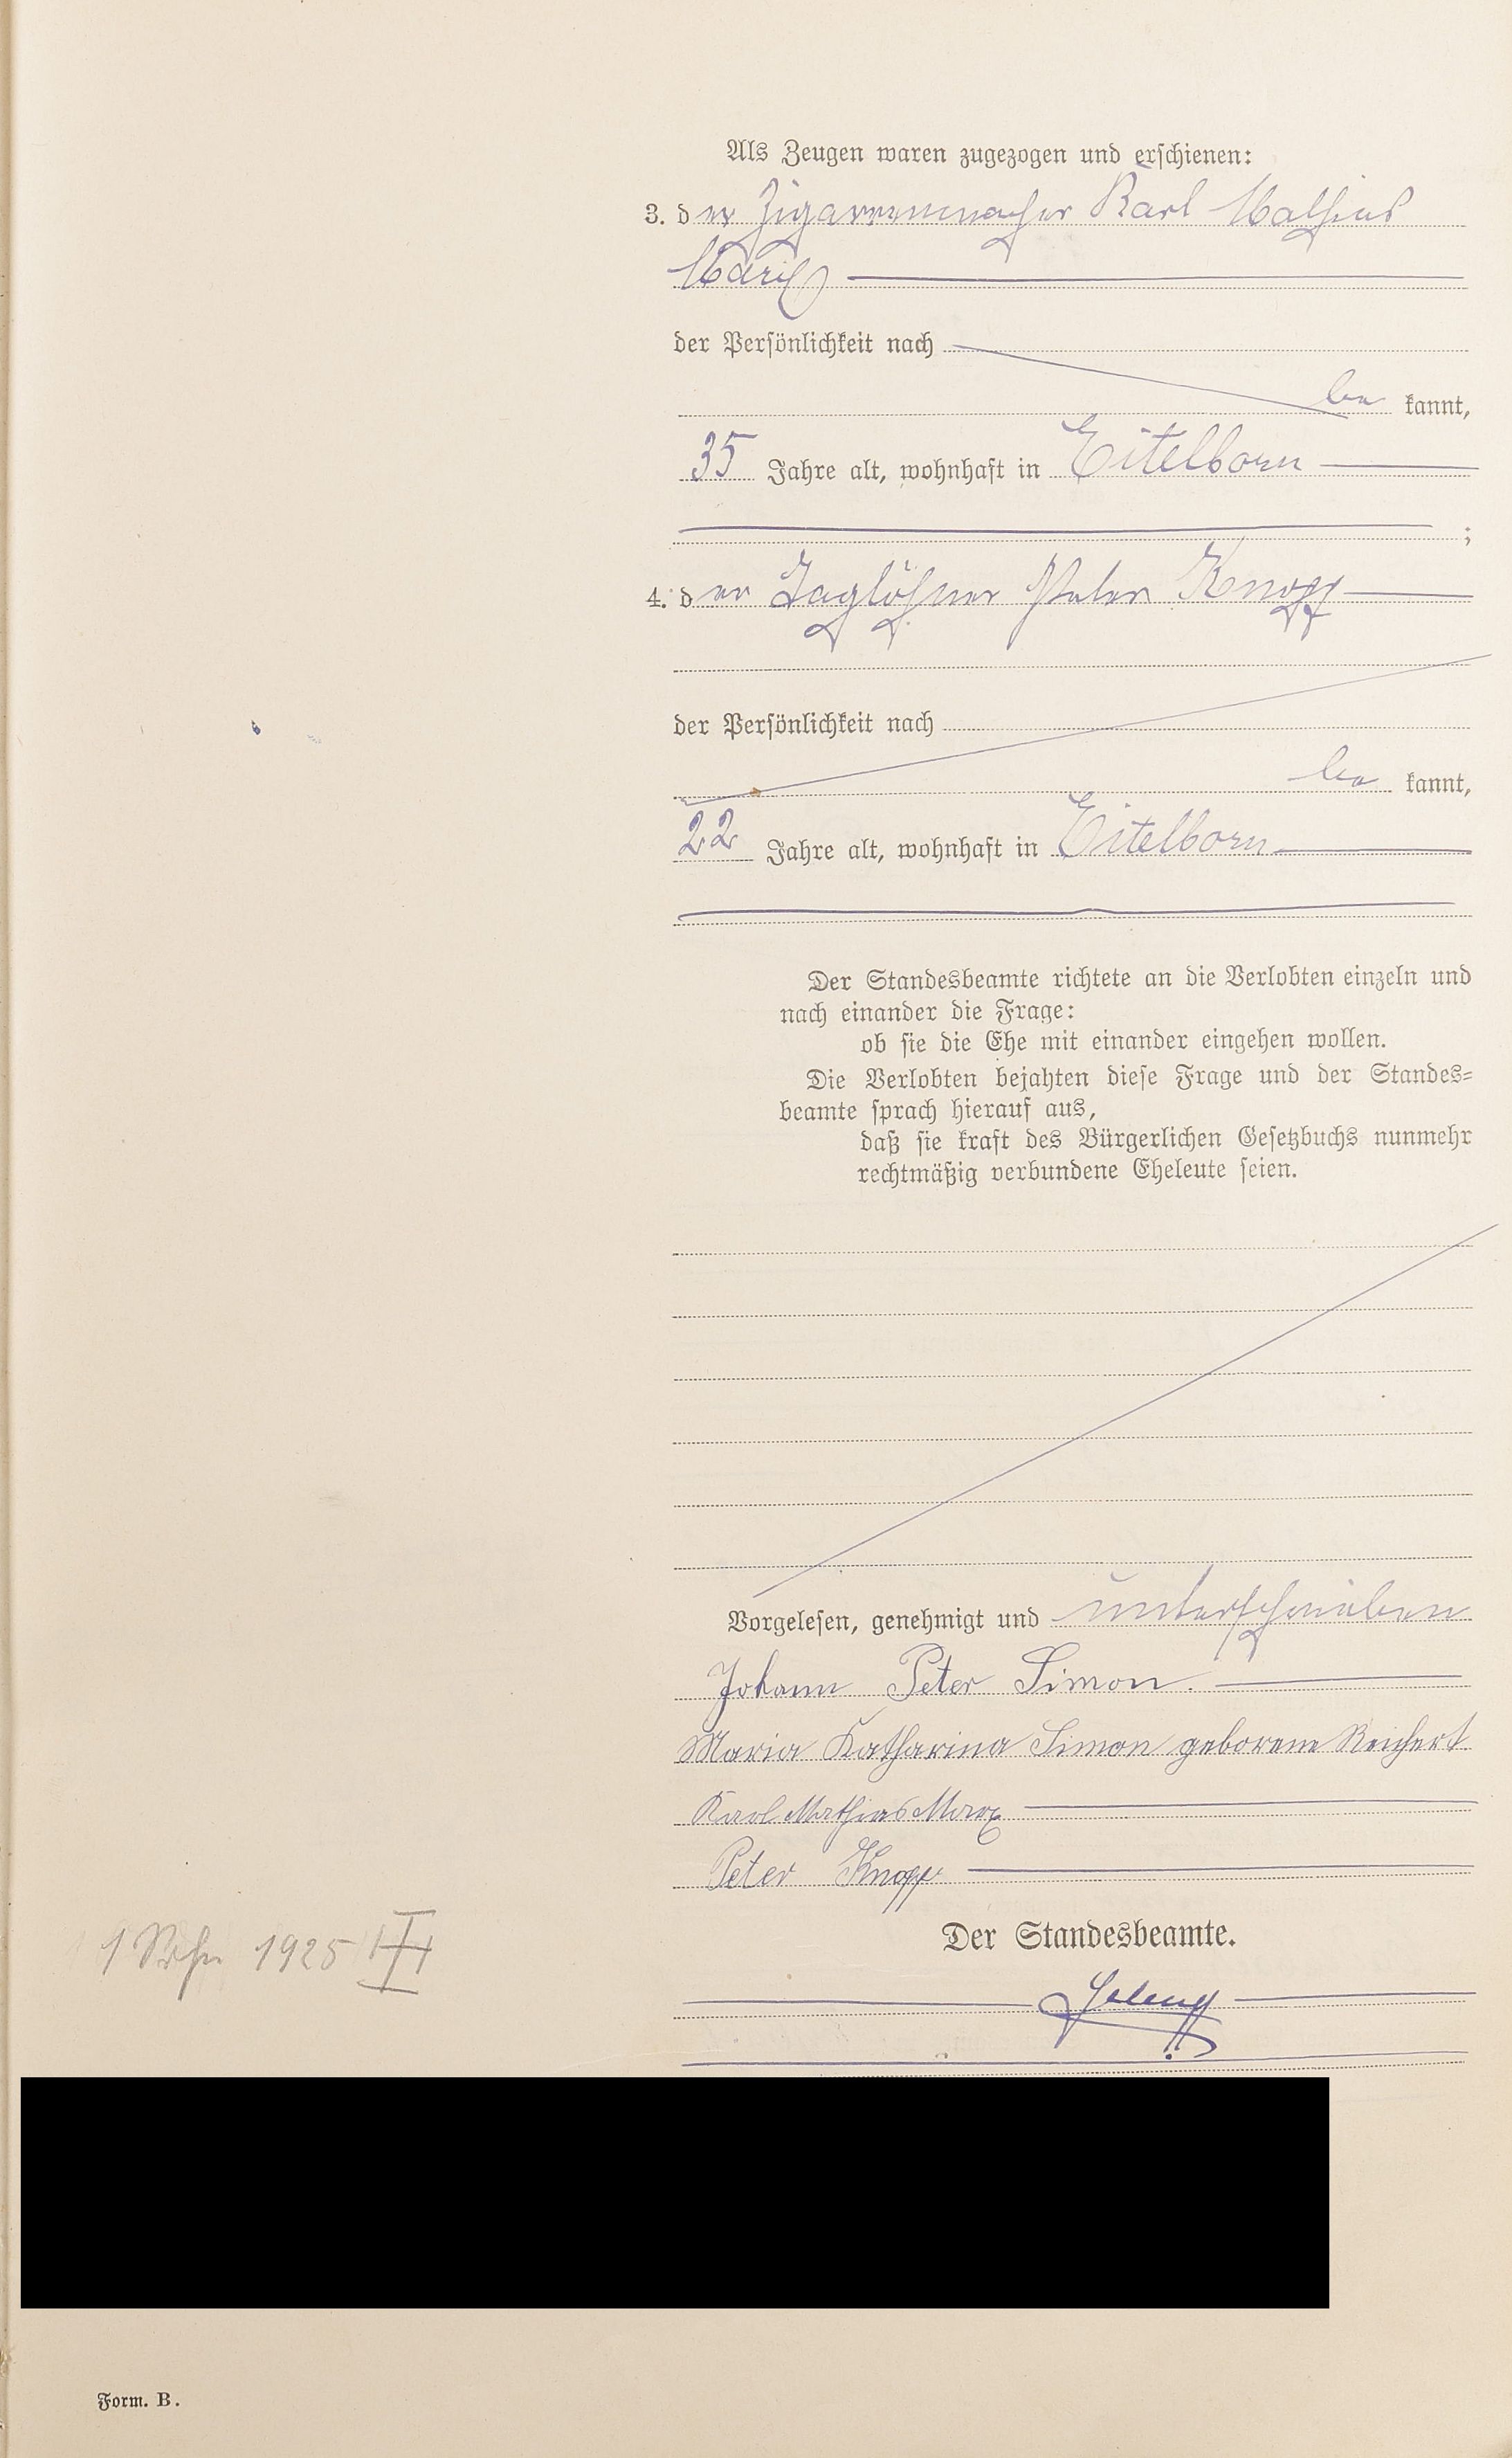 Als Zeugen waren zugezogen und erschienen:
3. der Zigarrenmacher Karl Mathias
Marx
der Persönlichkeit nach
be kannt,
35 Jahre alt, wohnhaft in Eitelborn
;
4. der Taglöhner Peter Knopp
der Persönlichkeit nach
be kannt,
22 Jahre alt, wohnhaft in Eitelborn
Der Standesbeamte richtete an die Verlobten einzeln und
nach einander die Frage:
ob sie die Ehe mit einander eingehen wollen.
Die Verlobten bejahten diese Frage und der Standes-
beamte sprach hierauf aus,
daß sie kraft des Bürgerlichen Gesetzbuchs nunmehr
rechtmäßig verbundene Eheleute seien.
Vorgelesen, genehmigt und unterschrieben
Johann Peter Simon.
Maria Katharina Simon geborene Reichert
Karl Mathias Marx
Peter Knopp
Der Standesbeamte.
1 Sohn 1925
Form. B.